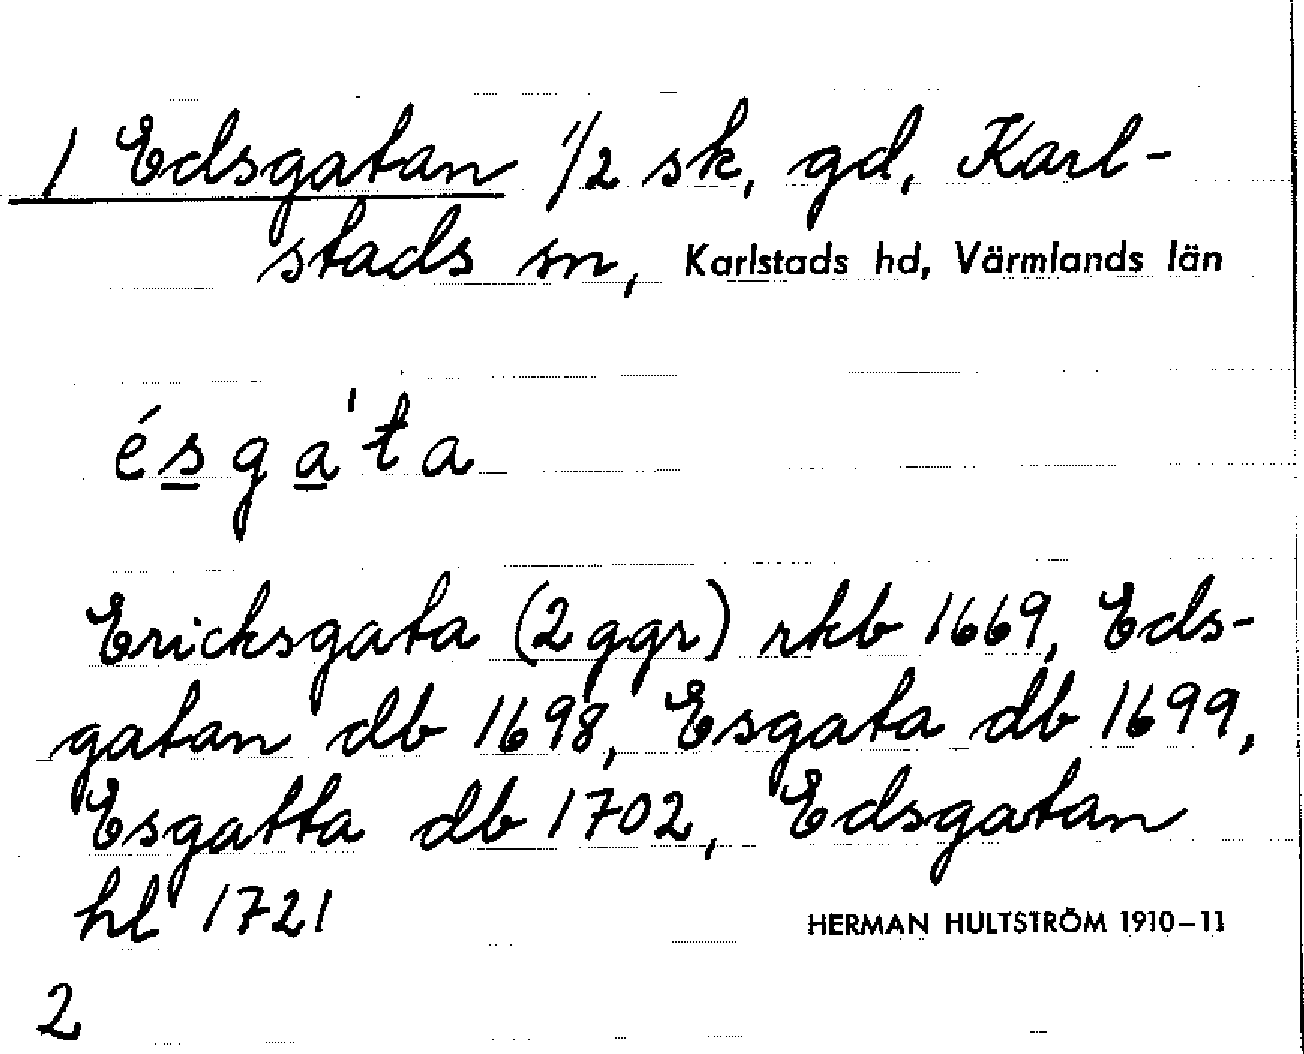 1 Edsgatan 1/2 sk, gd, Karl-
stads sn, Karlstads hd, Värmlands län
ésga'ta
Ericksgata (2 ggr) rkb 1669, Eds-
gatan db 1698, Esgata db 1699,
Esgatta db 1702, Edsgatan
hl 1721
HERMAN HULTSTRÖM 1910-11
2